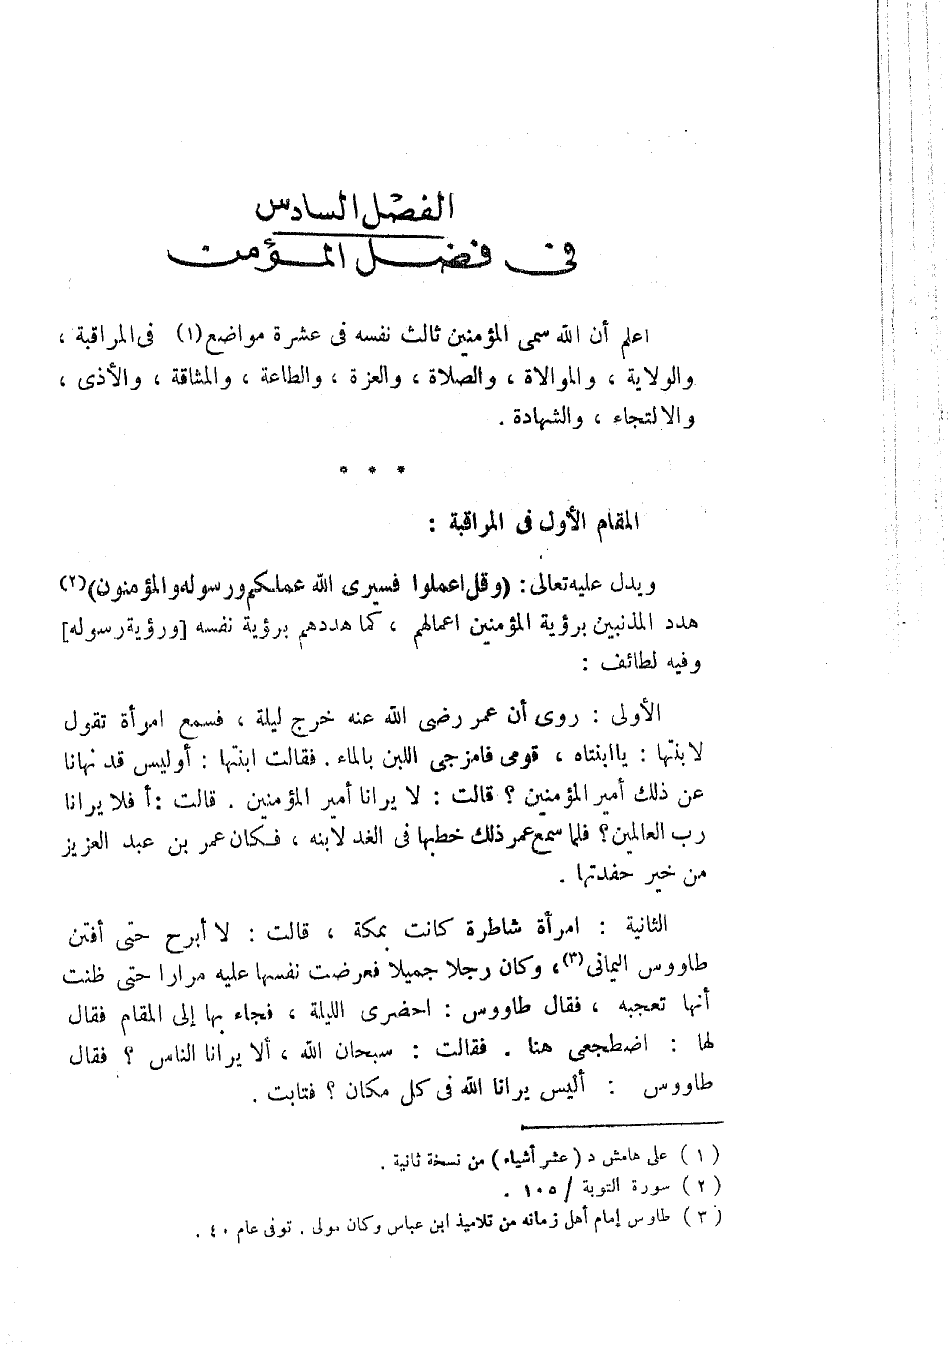 الفصل السادس
فى فضل المؤمن
اعلم أن الله سمى المؤمنين ثالث نفسه فى عشرة مواضع (١) فى المراقبة ،
والولاية ، والموالاة ، والصلاة ، والعزة ، والطاعة ، والمشاقة ، والأذى ،
والالتجاء ، والشهادة .
* * *
المقام الأول فى المراقبة :
ويدل عليه تعالى : (وقل اعملوا فسيرى الله عملكم ورسوله والمؤمنون) (٢)
هدد المذنبين برؤية المؤمنين اعمالهم ، كما هددهم برؤية نفسه [ورؤية رسوله]
وفيه لطائف :
الأولى : روى أن عمر رضى الله عنه خرج ليلة ، فسمع امرأة تقول
لابنتها : يا ابنتاه ، قومى فامزجى اللبن بالماء . فقالت ابنتها : أوليس قد نهانا
عن ذلك أمير المؤمنين ؟ قالت : لا يرانا أمير المؤمنين . قالت : أ فلا يرانا
رب العالمين ؟ فلما سمع عمر ذلك خطبها فى الغد لابنه ، فكان عمر بن عبد العزيز
من خير حفدتها .
الثانية : امرأة شاطرة كانت بمكة ، قالت : لا أبرح حتى أفتن
طاووس اليمانى (٣) ، وكان رجلا جميلا فعرضت نفسها عليه مرارا حتى ظنت
أنها تعجبه ، فقال طاووس : احضرى الليلة ، فجاء بها إلى المقام فقال
لها : اضطجعى هنا . فقالت : سبحان الله ، ألا يرانا الناس ؟ فقال
طاووس : أليس يرانا الله فى كل مكان ؟ فتابت .
(١) على هامش د (عشر أشياء) من نسخة ثانية .
(٢) سورة التوبة / ١٠٥ .
(٣) طاوس إمام أهل زمانه من تلاميذ ابن عباس وكان مولى . توفى عام ٤٠ .